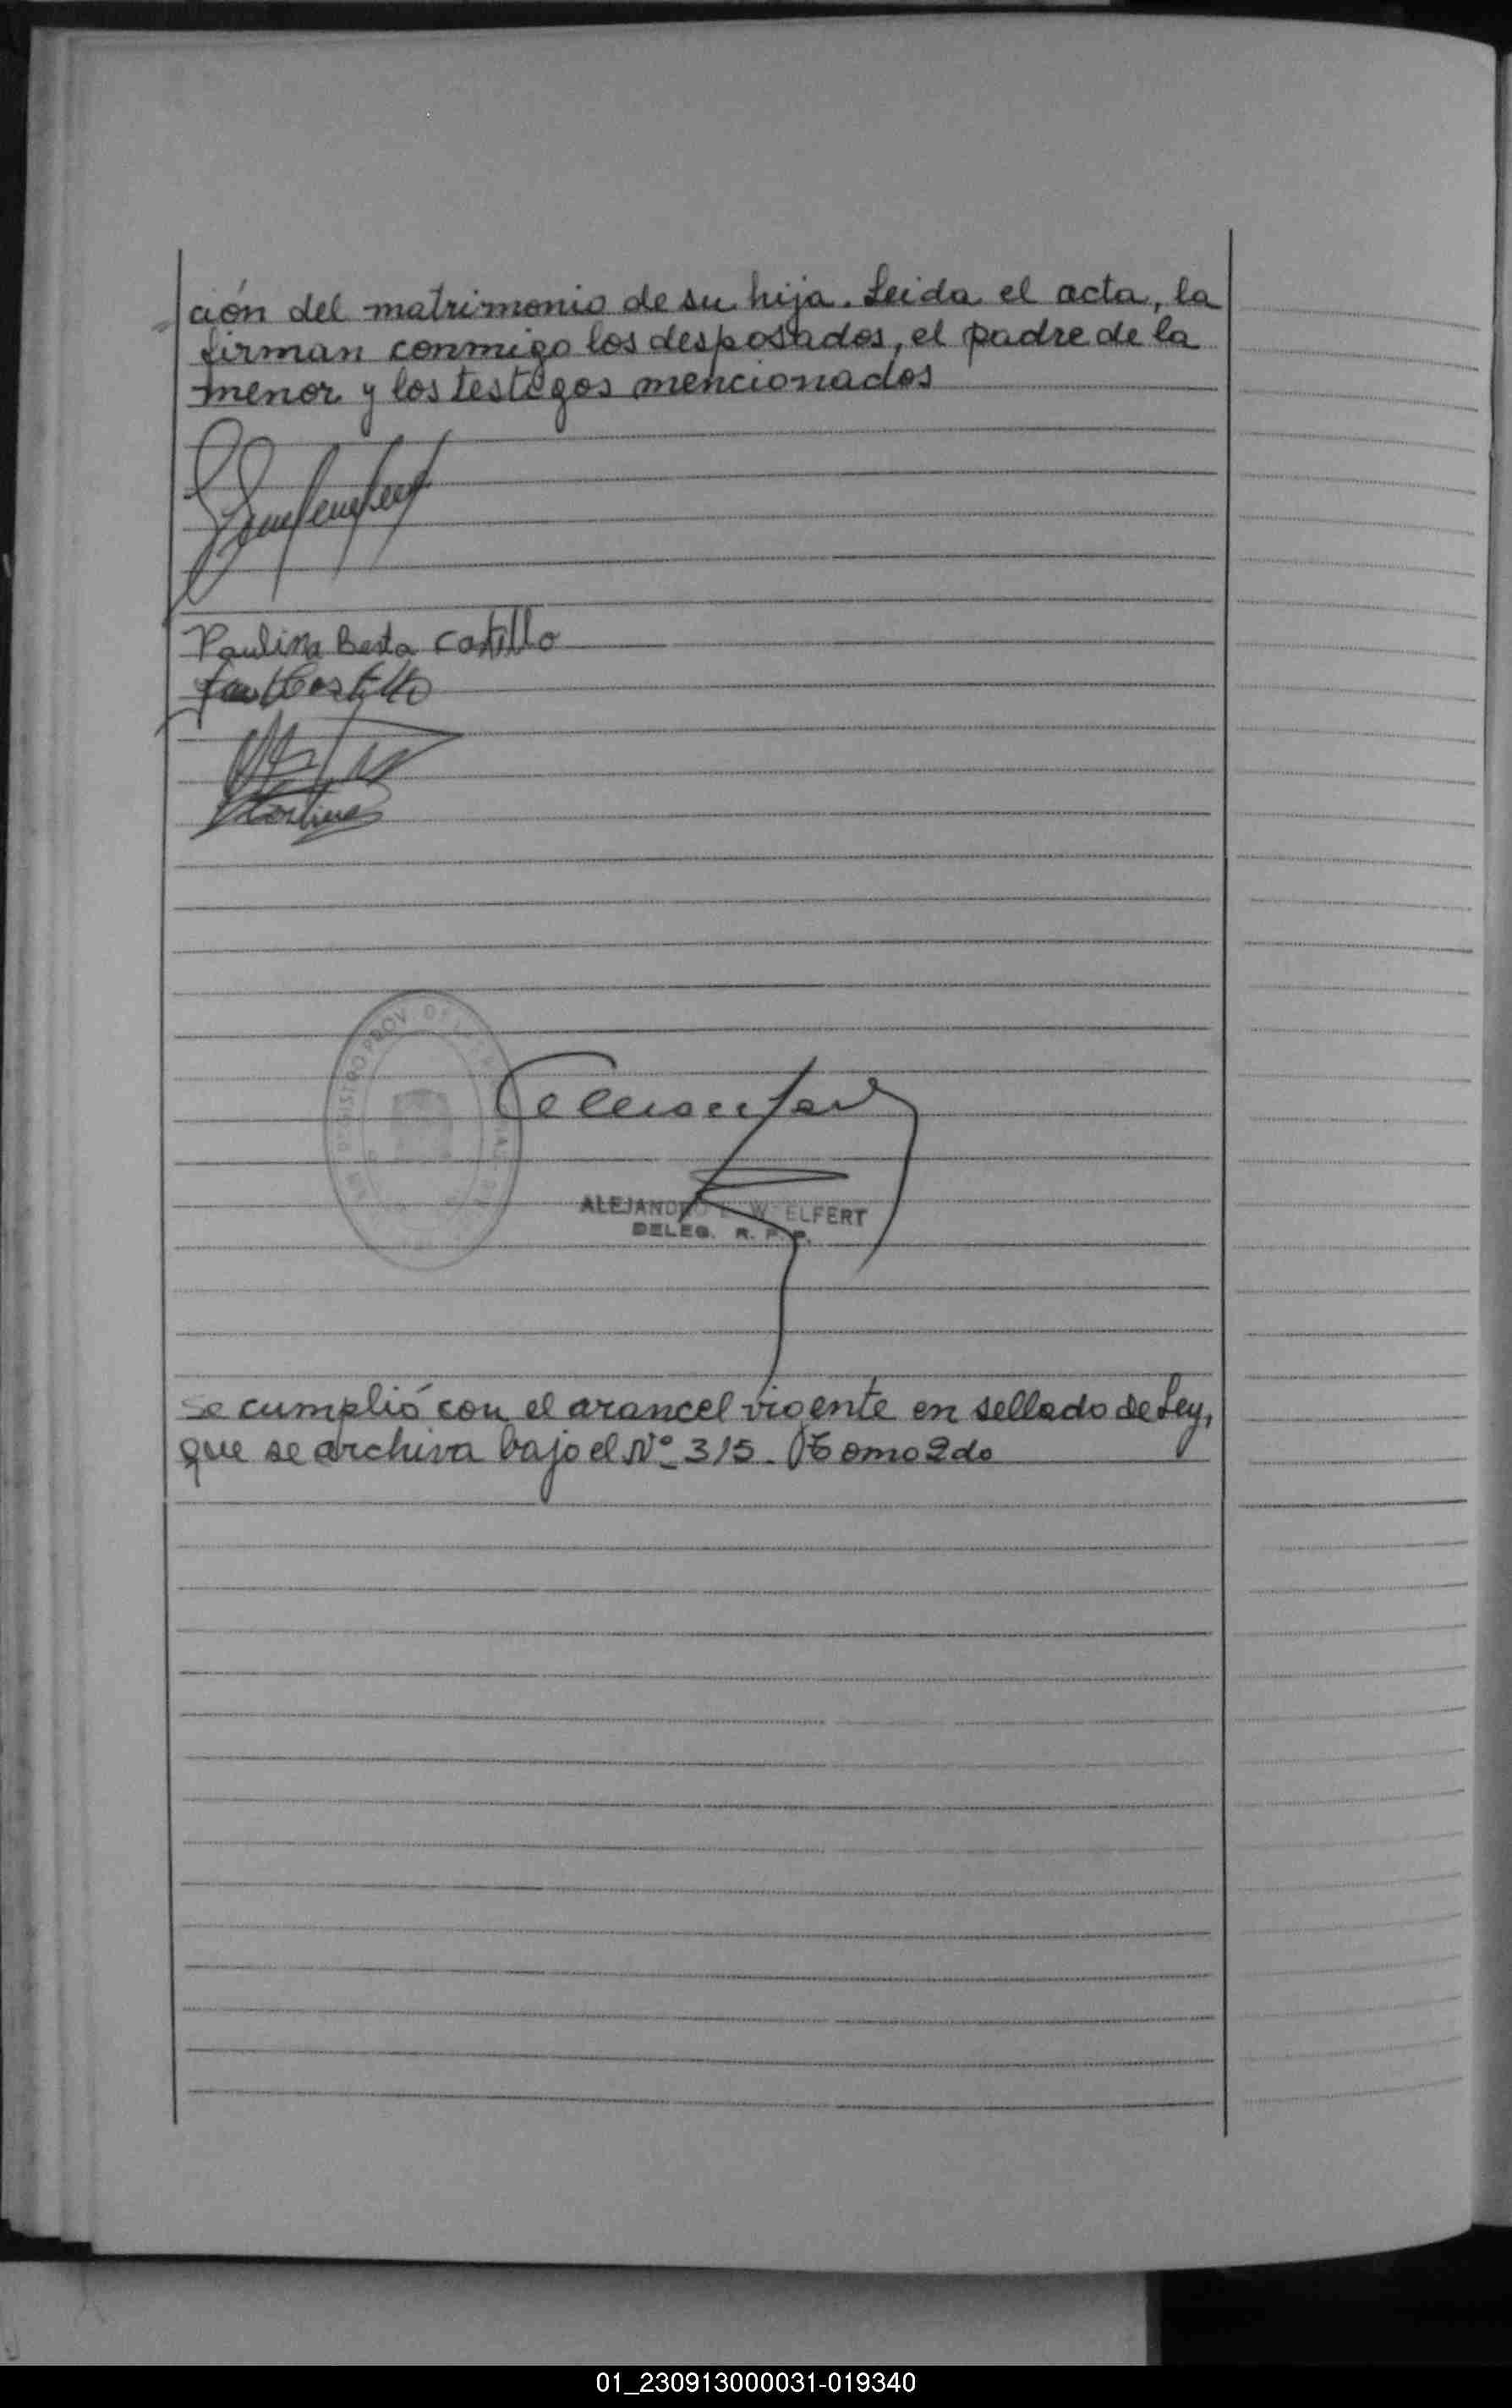 ción del matrimonio de su hija. Leida el acta, la
firman conmigo los desposados, el padre de la
menor y los testigos mencionados
Paulina Berta Castillo
Castillo
REGISTRO PROV. DE
ALEJANDRO W. ELFERT
DELEG. R. P. P.
Se cumplió con el arancel vigente en sellado de Ley,
que se archiva bajo el Nº 315. Tomo 2do
01_230913000031-019340